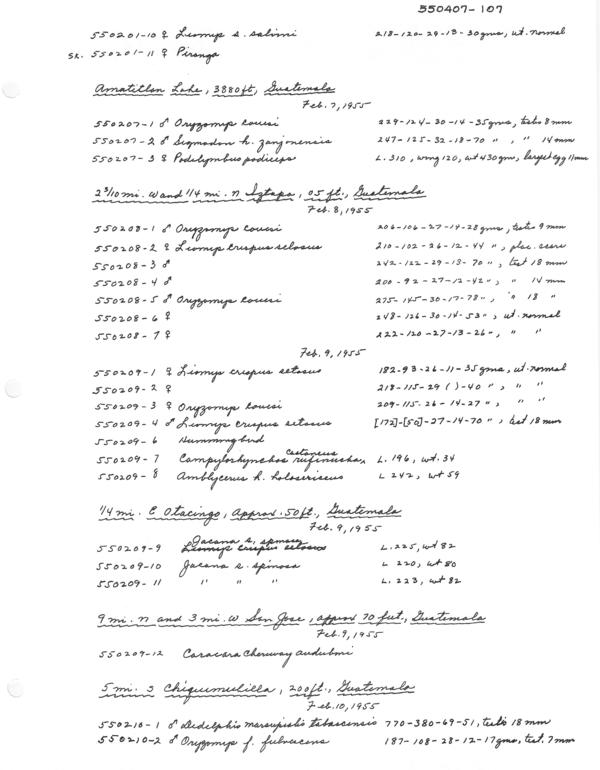 550407-107
550201-10 ♀ Liomys s. salvini 218-120-29-13-30gms, ut. normal
SK. 550201-11 ♀ Piranga
Amatitlan Lake, 3880ft, Guatemala
Feb. 7, 1955
550207-1 ♂ Oryzomys couesi 229-124-30-14-35gms, testes 8mm
550207-2 ♂ Sigmodon h. zanjonensis 247-125-32-18-70 " , " 14mm
550207-3 ♀ Podilymbus podiceps L. 310, wing 120, wt 430gm, largest egg 11mm
2 3/10 mi. W and 1/4 mi. N Iztapa, 05 ft., Guatemala
Feb. 8, 1955
550208-1 ♂ Oryzomys couesi 206-106-27-14-28gms, testes 9mm
550208-2 ♀ Liomys crispus setosus 210-102-26-12-44 " , plac. scars
550208-3 ♂ 242-122-29-13-70 " , test 18mm
550208-4 ♂ 200-92-27-12-42 " , " 14mm
550208-5 ♂ Oryzomys couesi 275-145-30-17-78 " , " 18 "
550208-6 ♀ 248-126-30-14-53 " , ut. normal
550208-7 ♀ 222-120-27-13-26 " , " "
Feb. 9, 1955
550209-1 ♀ Liomys crispus setosus 182-93-26-11-35gms, ut. normal
550209-2 ♀ 218-115-29 ( )-40 " , " "
550209-3 ♀ Oryzomys couesi 209-115-26-14-27 " , " "
550209-4 ♂ Liomys crispus setosus [172]-[50]-27-14-70 " , test 18mm
550209-6 Hummingbird
550209-7 Campylorhynchos rufinucha, L. 196, wt. 34
550209-8 Amblycerus h. holosericeus L 242, wt 59
1/4 mi. E Otacingo, Approx. 50ft., Guatemala
Feb. 9, 1955
550209-9 Jacana s. spinosa L. 225, wt 82
Liomys crispus setosus
550209-10 Jacana s. spinosa L 220, wt 80
550209-11 " " " L. 223, wt 82
9 mi. N and 3 mi. W San Jose, approx 70 feet, Guatemala
Feb. 9, 1955
550209-12 Caracara cheriway audubonii
5 mi. S Chiquimulilla, 200ft., Guatemala
Feb. 10, 1955
550210-1 ♂ Didelphis marsupialis tabascensis 770-380-69-51, testis 18mm
550210-2 ♂ Oryzomys f. fulvescens 187-108-28-12-17gms, test. 7mm